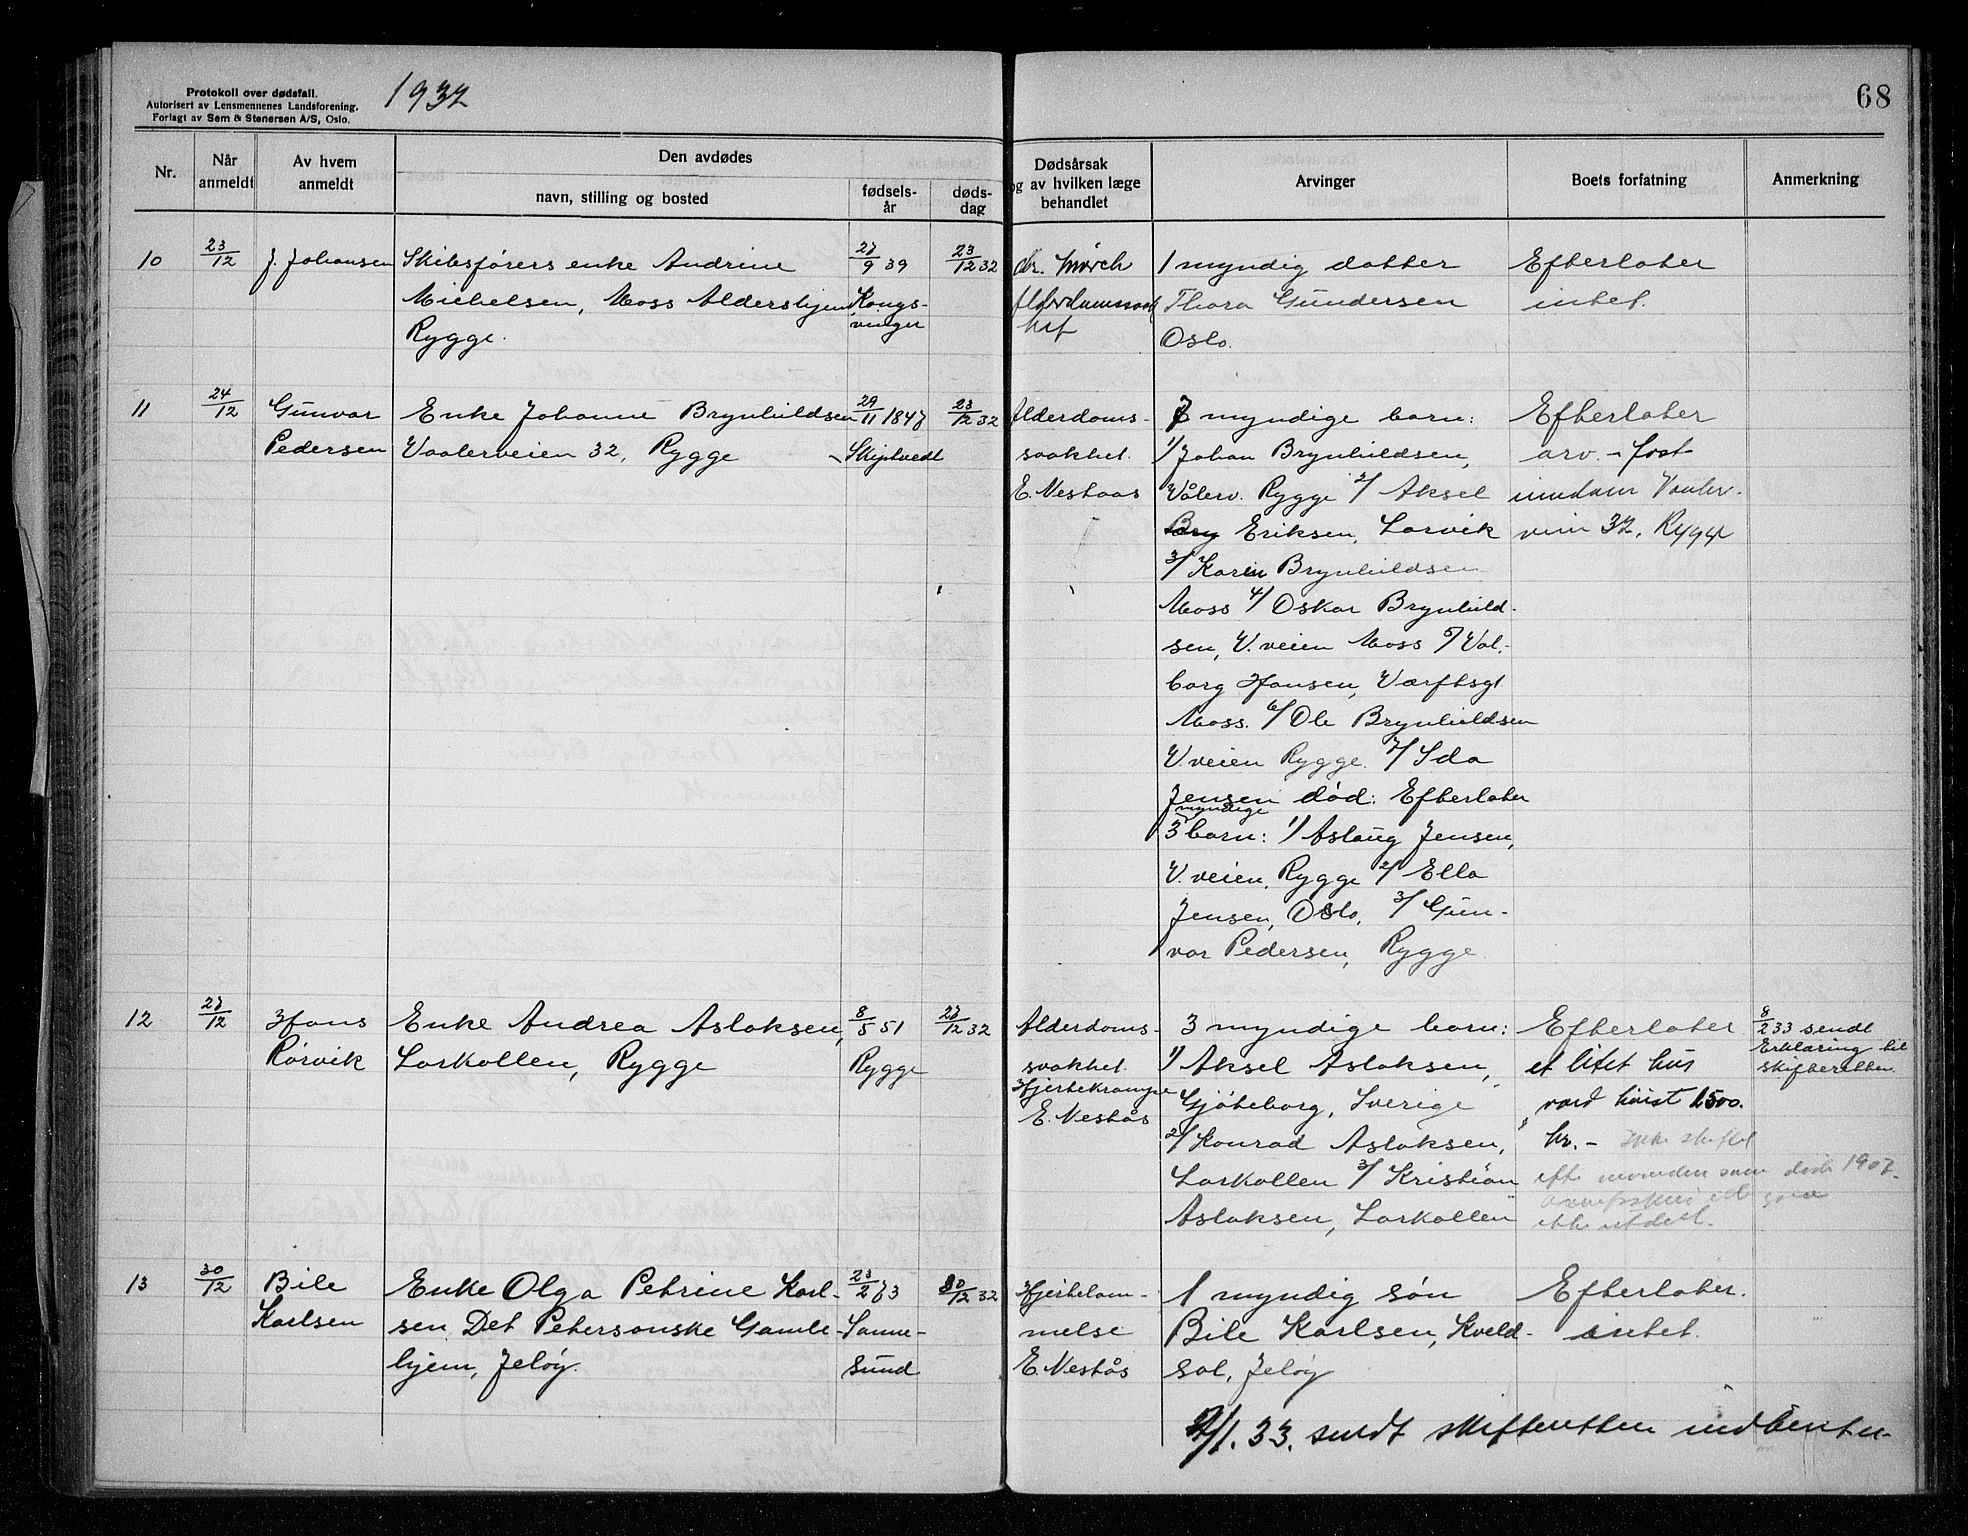 Protokoll over dødsfall.
Autorisert av Lensmennenes Landsforening.
Forlagt av Sem & Stenersen A/S, Oslo.
1932
68
Nr.
Når anmeldt
Av hvem anmeldt
Den avdødes
navn, stilling og bosted
fødsels-år
døds-dag
Dødsårsak
og av hvilken læge
behandlet
Arvinger
Boets forfatning
Anmerkning
10
23/12
J. Johansen
Skibsførers enke Andrine
Michelsen, Moss Aldershjem
Rygge.
27/9 39
Kongs-
vinger
23/12 32
dr. Mørch
Alderdomssvak
het
1 myndig datter
Thora Gundersen
Oslo.
Efterlater
intet.
11
24/12
Gunvor
Pedersen
Enke Johanne Brynhildsen
Vaalerveien 32, Rygge
29/11 1847
Skiptvedt
23/12 32
Alderdoms-
svakhet.
E. Nestaas
7 myndige barn:
1/ Johan Brynhildsen,
Vålerv. Rygge 2/ Aksel
Bry Eriksen, Larvik
3/ Karin Brynhildsen
Moss 4/ Oskar Brynhild-
sen, V.veien Moss 5/ Val-
borg Hansen, Værftsgt
Moss. 6/ Ole Brynhildsen
V.veien Rygge. 7/ Ida
Jensen død: Efterlater
myndige
3 barn: 1/ Aslaug Jensen,
V.veien, Rygge 2/ Ella
Jensen, Oslo, 3/ Gun-
vor Pedersen, Rygge.
Efterlater
arv. - fast
eiendom Vaaler-
veien 32, Rygge
12
27/12
Hans
Rörvik
Enke Andrea Aslaksen,
Larkollen, Rygge
8/5 51
Rygge
27/12 32
Alderdoms-
svakhet.
Hjertekrampe
E. Nestås
3 myndige barn:
1/ Aksel Aslaksen,
Gjøteborg, Sverige
2/ Konrad Aslaksen,
Larkollen 3/ Kristian
Aslaksen, Larkollen
Efterlater
et litet hus
verd høist 1500.
kr. - Ikke skiftet
efter manden som døde 1907.
ikke utdelt.
8/2 33 sendt
Erklæring til
skifteretten.
13
30/12
Bile
Karlsen
Enke Olga Petrine Karl-
sen Det Petersonske Gamle-
hjem, Jeløy.
23/2 63
Sanne-
sund
30/12 32
Hjertelam-
melse
E. Nestås
1 myndig søn
Bile Karlsen, Kveld-
sol, Jeløy
Efterlater.
intet.
2/1. 33. sendt skifteretten indberetn.